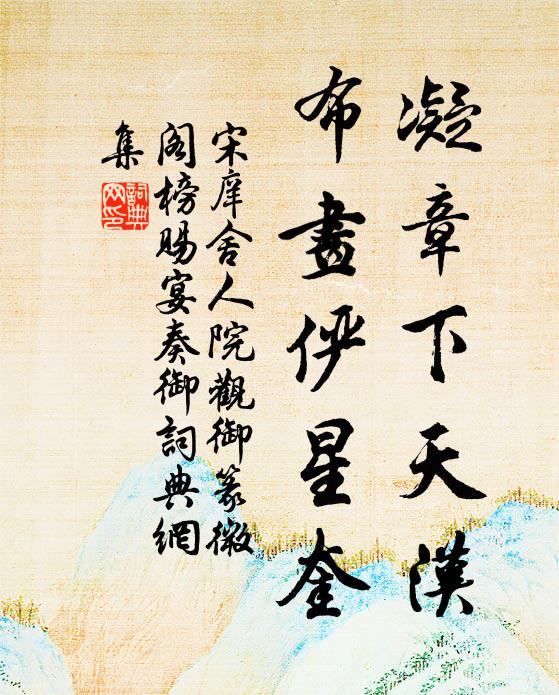 凝章下天漢
布畫侔星奎
宋庠舍人院觀御篆徽
閣榜賜宴奏御詞典網
集
詞典網印